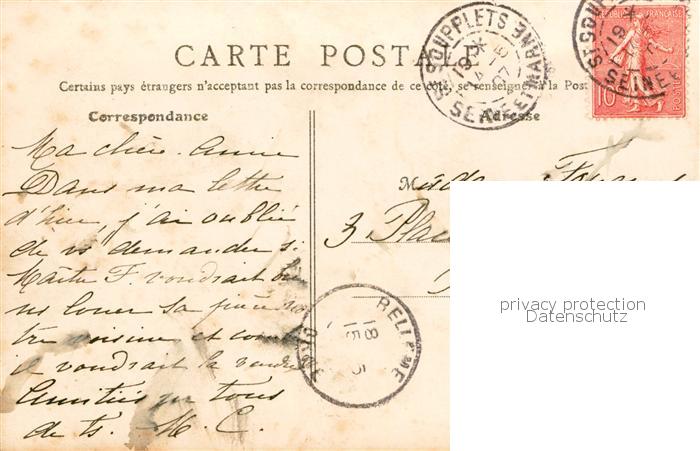 CARTE POSTALE
Certains pays étrangers n'acceptent pas la correspondance de ce côté, se renseigner à la Post
Correspondance
Adresse
ST SOUPPLETS SEINE ET MARNE
19
4
07
ST SOU
19
SEINE E
RÉPUBLIQUE FRANÇAISE
10
Ma chère Annie
Dans ma lettre
d'hier, j'ai oublié
de vs demander si
Maître F. voudrait
ns louer sa
tre voisine et
il voudrait la vendre
Amitiés tous
de ts. M. C.
3, Pla
BELLÊME
ORNE
18
15 5
privacy protection
Datenschutz